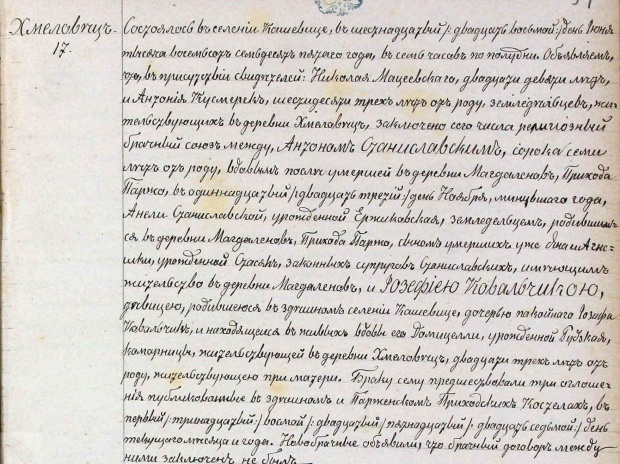 Хмеловецъ.
17.
Состоялось въ селеніи Кашевице, въ шестнадцатый /: двадцать восьмой :/ день Іюня
тысяча восемьсотъ семьдесятъ пятаго года, въ семь часовъ по полудни. Объявляемъ,
что, въ присутствіи свидѣтелей: Николая Мацеевскаго, двадцати девяти лѣтъ,
и Антонія Кусмерекъ, шестидесяти трехъ лѣтъ отъ роду, земледѣльцевъ, жи-
тельствующихъ въ деревни Хмеловецъ, заключенъ сего числа религіозный
брачный союзъ между, Антономъ Станиславскимъ, сорока семи
лѣтъ отъ роду, вдовымъ послѣ умершей въ деревни Магдаленовъ, Прихода
Паржно, въ одиннадцатый /: двадцать третій :/ день Ноября, минувшаго года,
Анели Станиславской, урожденной Ержиковская, земледѣльцемъ, родивши-
ся въ деревни Магдаленовъ, Прихода Паржно, сыномъ умершихъ уже Яна и Агне-
шки, урожденной Стасякъ, законныхъ супруговъ Станиславскихъ, имѣющимъ
жительство въ деревни Магдаленовъ, и Іозефіею Ковальчикою,
дѣвицею, родившеюся въ здѣшномъ селеніи Кашевице, дочерью покойнаго Іозефа
Ковальчикъ, и находящейся въ живыхъ вдовы его Домицелли, урожденной Рудзкая,
коморницы, жительствующей въ деревни Хмеловецъ, двадцати трехъ лѣтъ отъ
роду, жительствующею при матери. Браку сему предшествовали три оглаше-
нія публикованные въ здѣшномъ и Парженскомъ Приходскихъ Костелахъ, въ
первый /: тринадцатый :/ восмой /: двадцатый :/ пятнадцатый /: двадцать седьмой :/ день
текущаго мѣсяца и года. Новобрачные объявили что брачный договоръ между
ними заключенъ не былъ